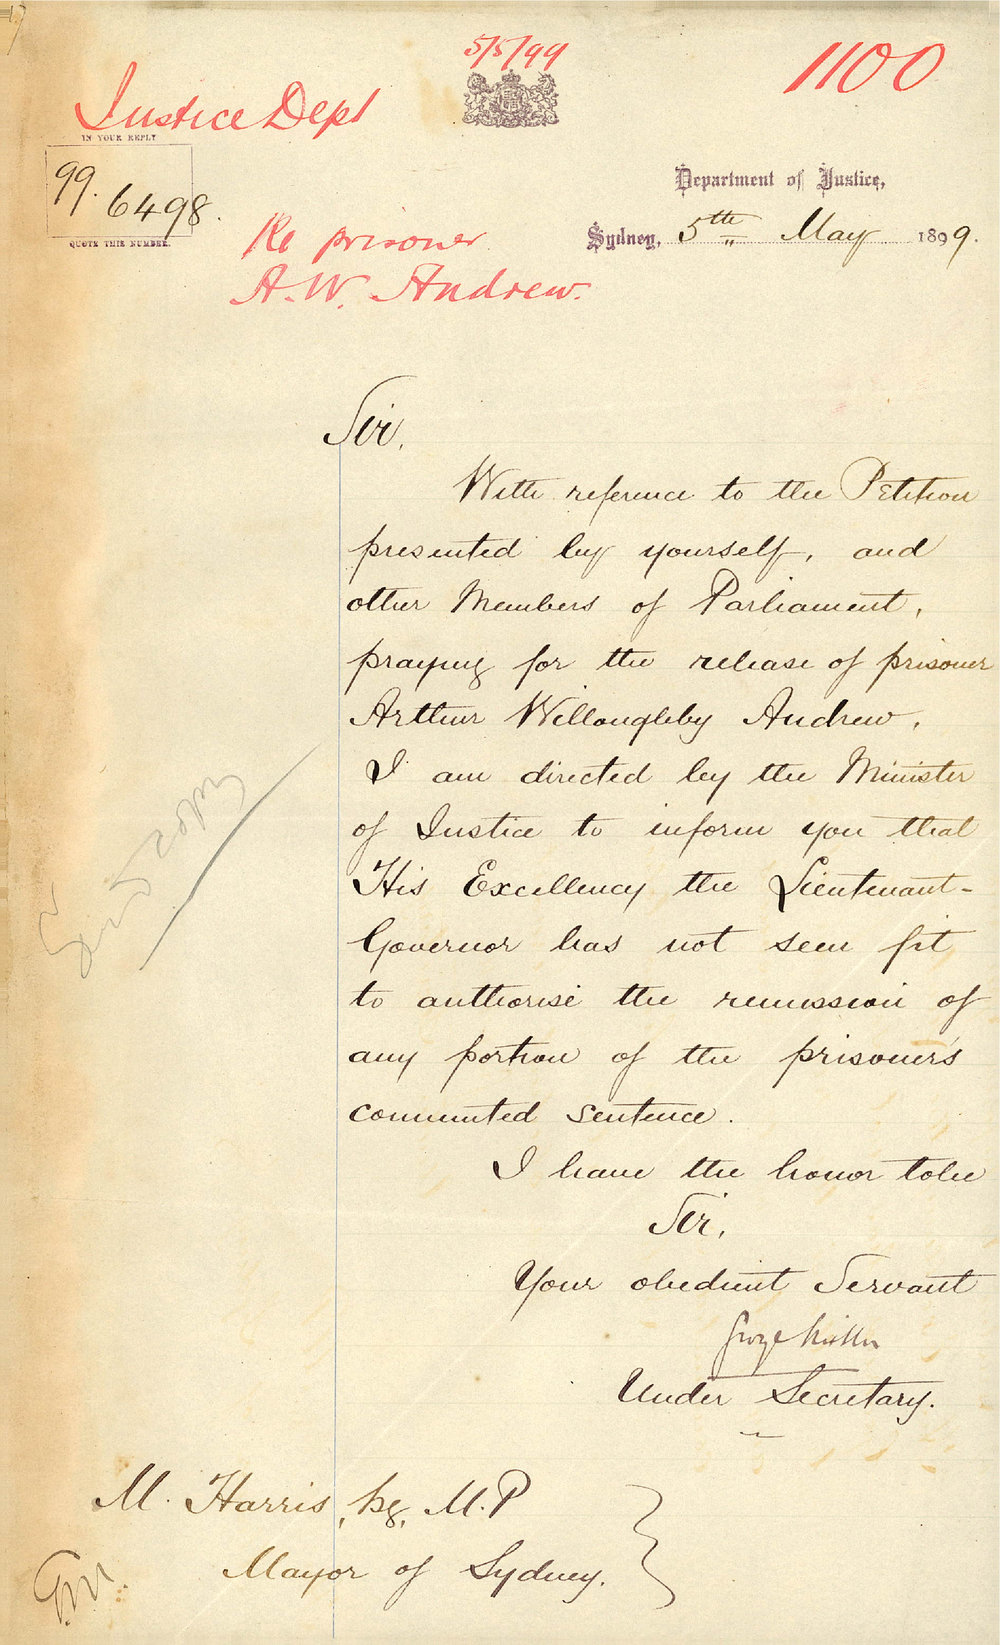 5/5/99
1100
Justice Dept
IN YOUR REPLY
99. 6498.
QUOTE THIS NUMBER.
Department of Justice,
Sydney, 5th May 1899.
Re prisoner
A. W. Andrew.
Sir,
With reference to the Petition
presented by yourself, and
other Members of Parliament,
praying for the release of prisoner
Arthur Willoughby Andrew,
I am directed by the Minister
of Justice to inform you that
His Excellency the Lieutenant-
Governor has not seen fit
to authorise the remission of
any portion of the prisoner's
commuted sentence.
I have the honor to be
Sir,
Your obedient Servant
George Miller
Under Secretary.
M. Harris, Esq, M.P
Mayor of Sydney.
Sent copy